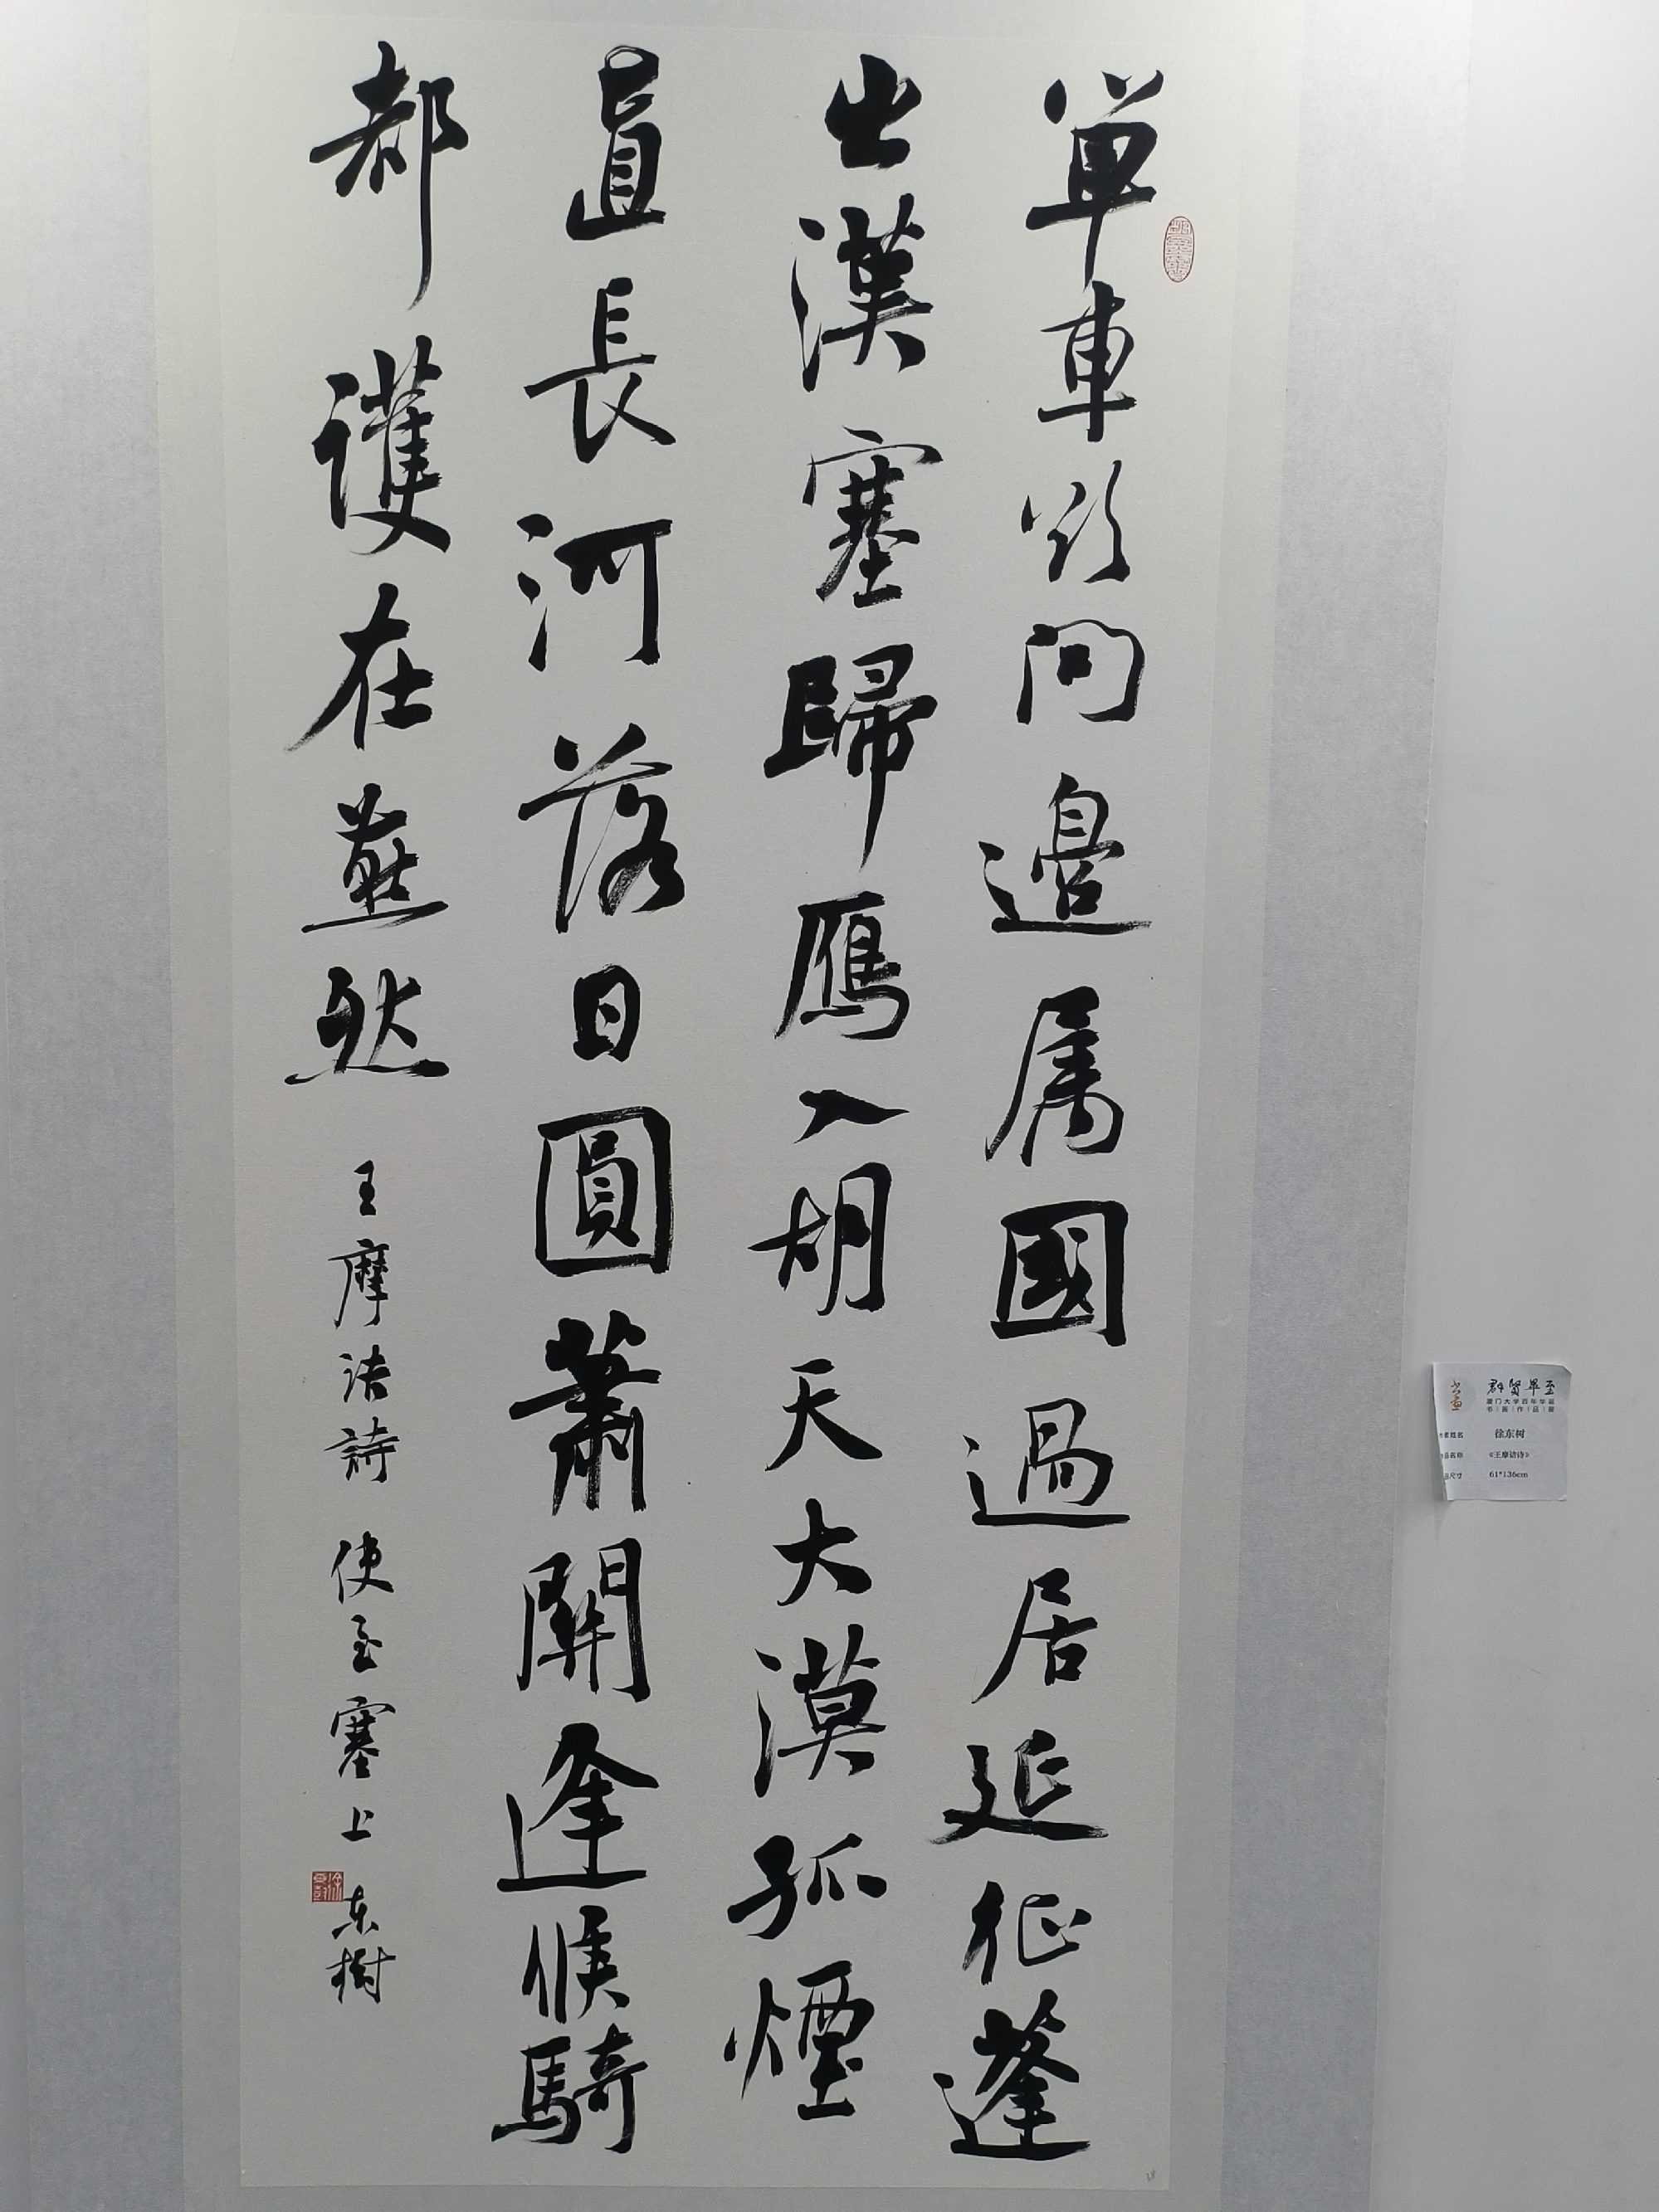 單車欲問邊属國過居延征蓬
出漢塞歸鴈入胡天大漠孤煙
直長河落日圓蕭關逢候騎
都護在燕然
王摩詰詩 使至塞上 东樹
群贤毕至
厦门大学百年华诞
书|画|作|品|展
作者姓名 徐东树
作品名称 《王摩诘诗》
作品尺寸 61*136cm